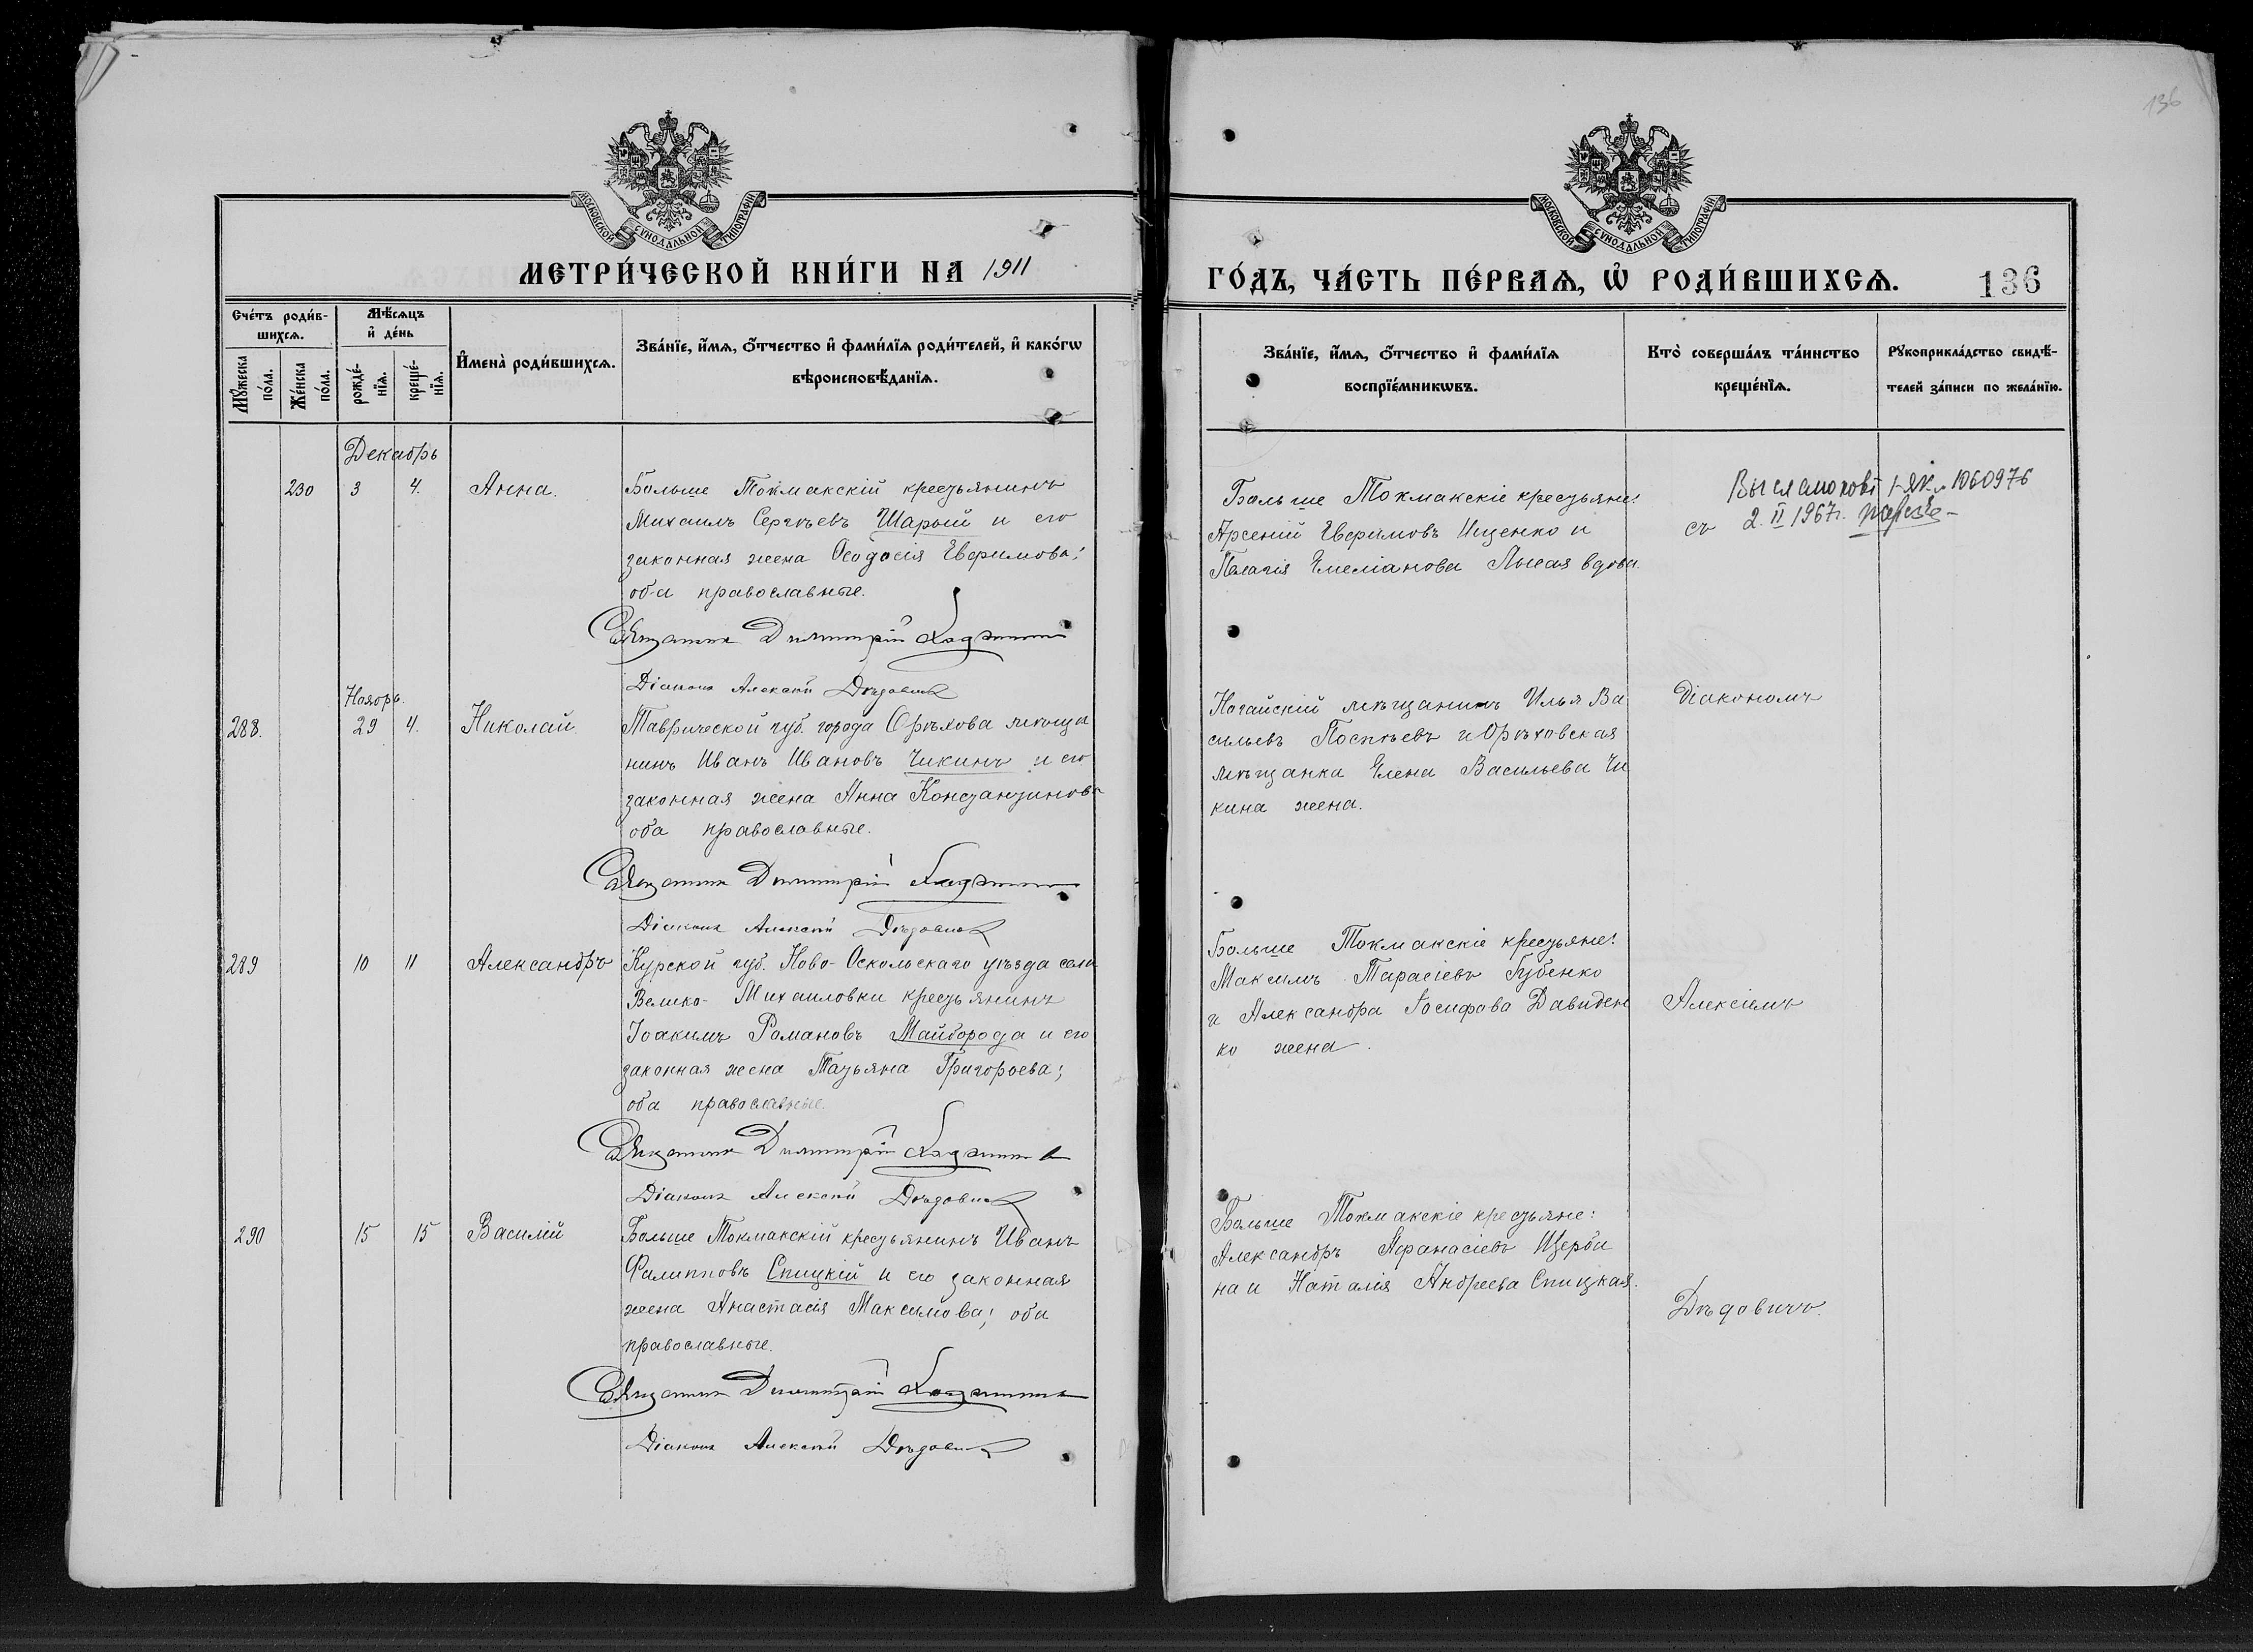 136
МОСКОВСКОЙ СУНОДАЛЬНОЙ ТИПОГРАФІИ
МЕТРИ́ЧЕСКОЙ КНИ́ГИ НА 1911
Сче́тъ роди́в-
шихсѧ.
Мꙋ́жеска по́ла.
Же́нска по́ла.
Мѣ́сѧцъ
и҆ де́нь
рожде́-
нїѧ.
креще́-
нїѧ.
И҆мена̀ роди́вшихсѧ.
Зва́нїе, и҆́мѧ, ѻ҆́тчество и҆ фами́лїѧ роди́телей, и҆ како́гѡ
вѣроисповѣ́данїѧ.
Декабрь
230 3 4. Анна. Больше Токмакскій крестьянинъ
Михаилъ Сергѣевъ Шарый и его
законная жена Ѳеодосія Евфимова;
оба православные.
Священник Димитрій
Діаконъ Алексѣй Дѣдович
Ноябрь.
288. 29 4. Николай. Таврической губ. города Орѣхова мѣща
нинъ Иванъ Ивановъ Чикинъ и его
законная жена Анна Константинова
оба православные.
Священник Димитрій
Діаконъ Алексѣй Дѣдович
289 10 11 Александръ Курской губ. Ново-Оскольскаго уѣзда села
Велико-Михаиловки крестьянинъ
Іоакимъ Романовъ Майборода и его
законная жена Татьяна Григорьева;
оба православные.
Священник Димитрій
Діаконъ Алексѣй Дѣдович
290 15 15 Василій Больше Токмакскій крестьянинъ Иванъ
Филипповъ Спицкій и его законная
жена Анастасія Максимова; оба
православные.
Священник Димитрій
Діаконъ Алексѣй Дѣдович
МОСКОВСКОЙ СУНОДАЛЬНОЙ ТИПОГРАФІИ
ГО́ДЪ, ЧА́СТЬ ПЕ́РВАѦ, Ѡ҆ РОДИ́ВШИХСѦ. 136
Зва́нїе, и҆́мѧ, ѻ҆́тчество и҆ фами́лїѧ
воспрїе́мникѡвъ.
Кто̀ соверша́лъ та́инство
креще́нїѧ.
Рꙋкоприкла́дство свидѣ́-
телей за́писи по жела́нїю.
Больше Токмакскіе крестьяне:
Арсеній Евфимовъ Ищенко и
Пелагія Емеліанова Лысая вдова.
1060976
съ 2. II 1967г.
Ногайскій мѣщанинъ Илья Ва
сильевъ и Орѣховская
мѣщанка Елена Васильева Чи
кина жена.
Діакономъ
Больше Токмакскіе крестьяне:
Максимъ Тарасіевъ Губенко
и Александра Іосифова Давиден
ко жена.
Алексіемъ
Больше Токмакскіе крестьяне:
Александръ Афанасіевъ Щерби
на и Наталія Андреева Спицкая.
Дѣдовичъ.